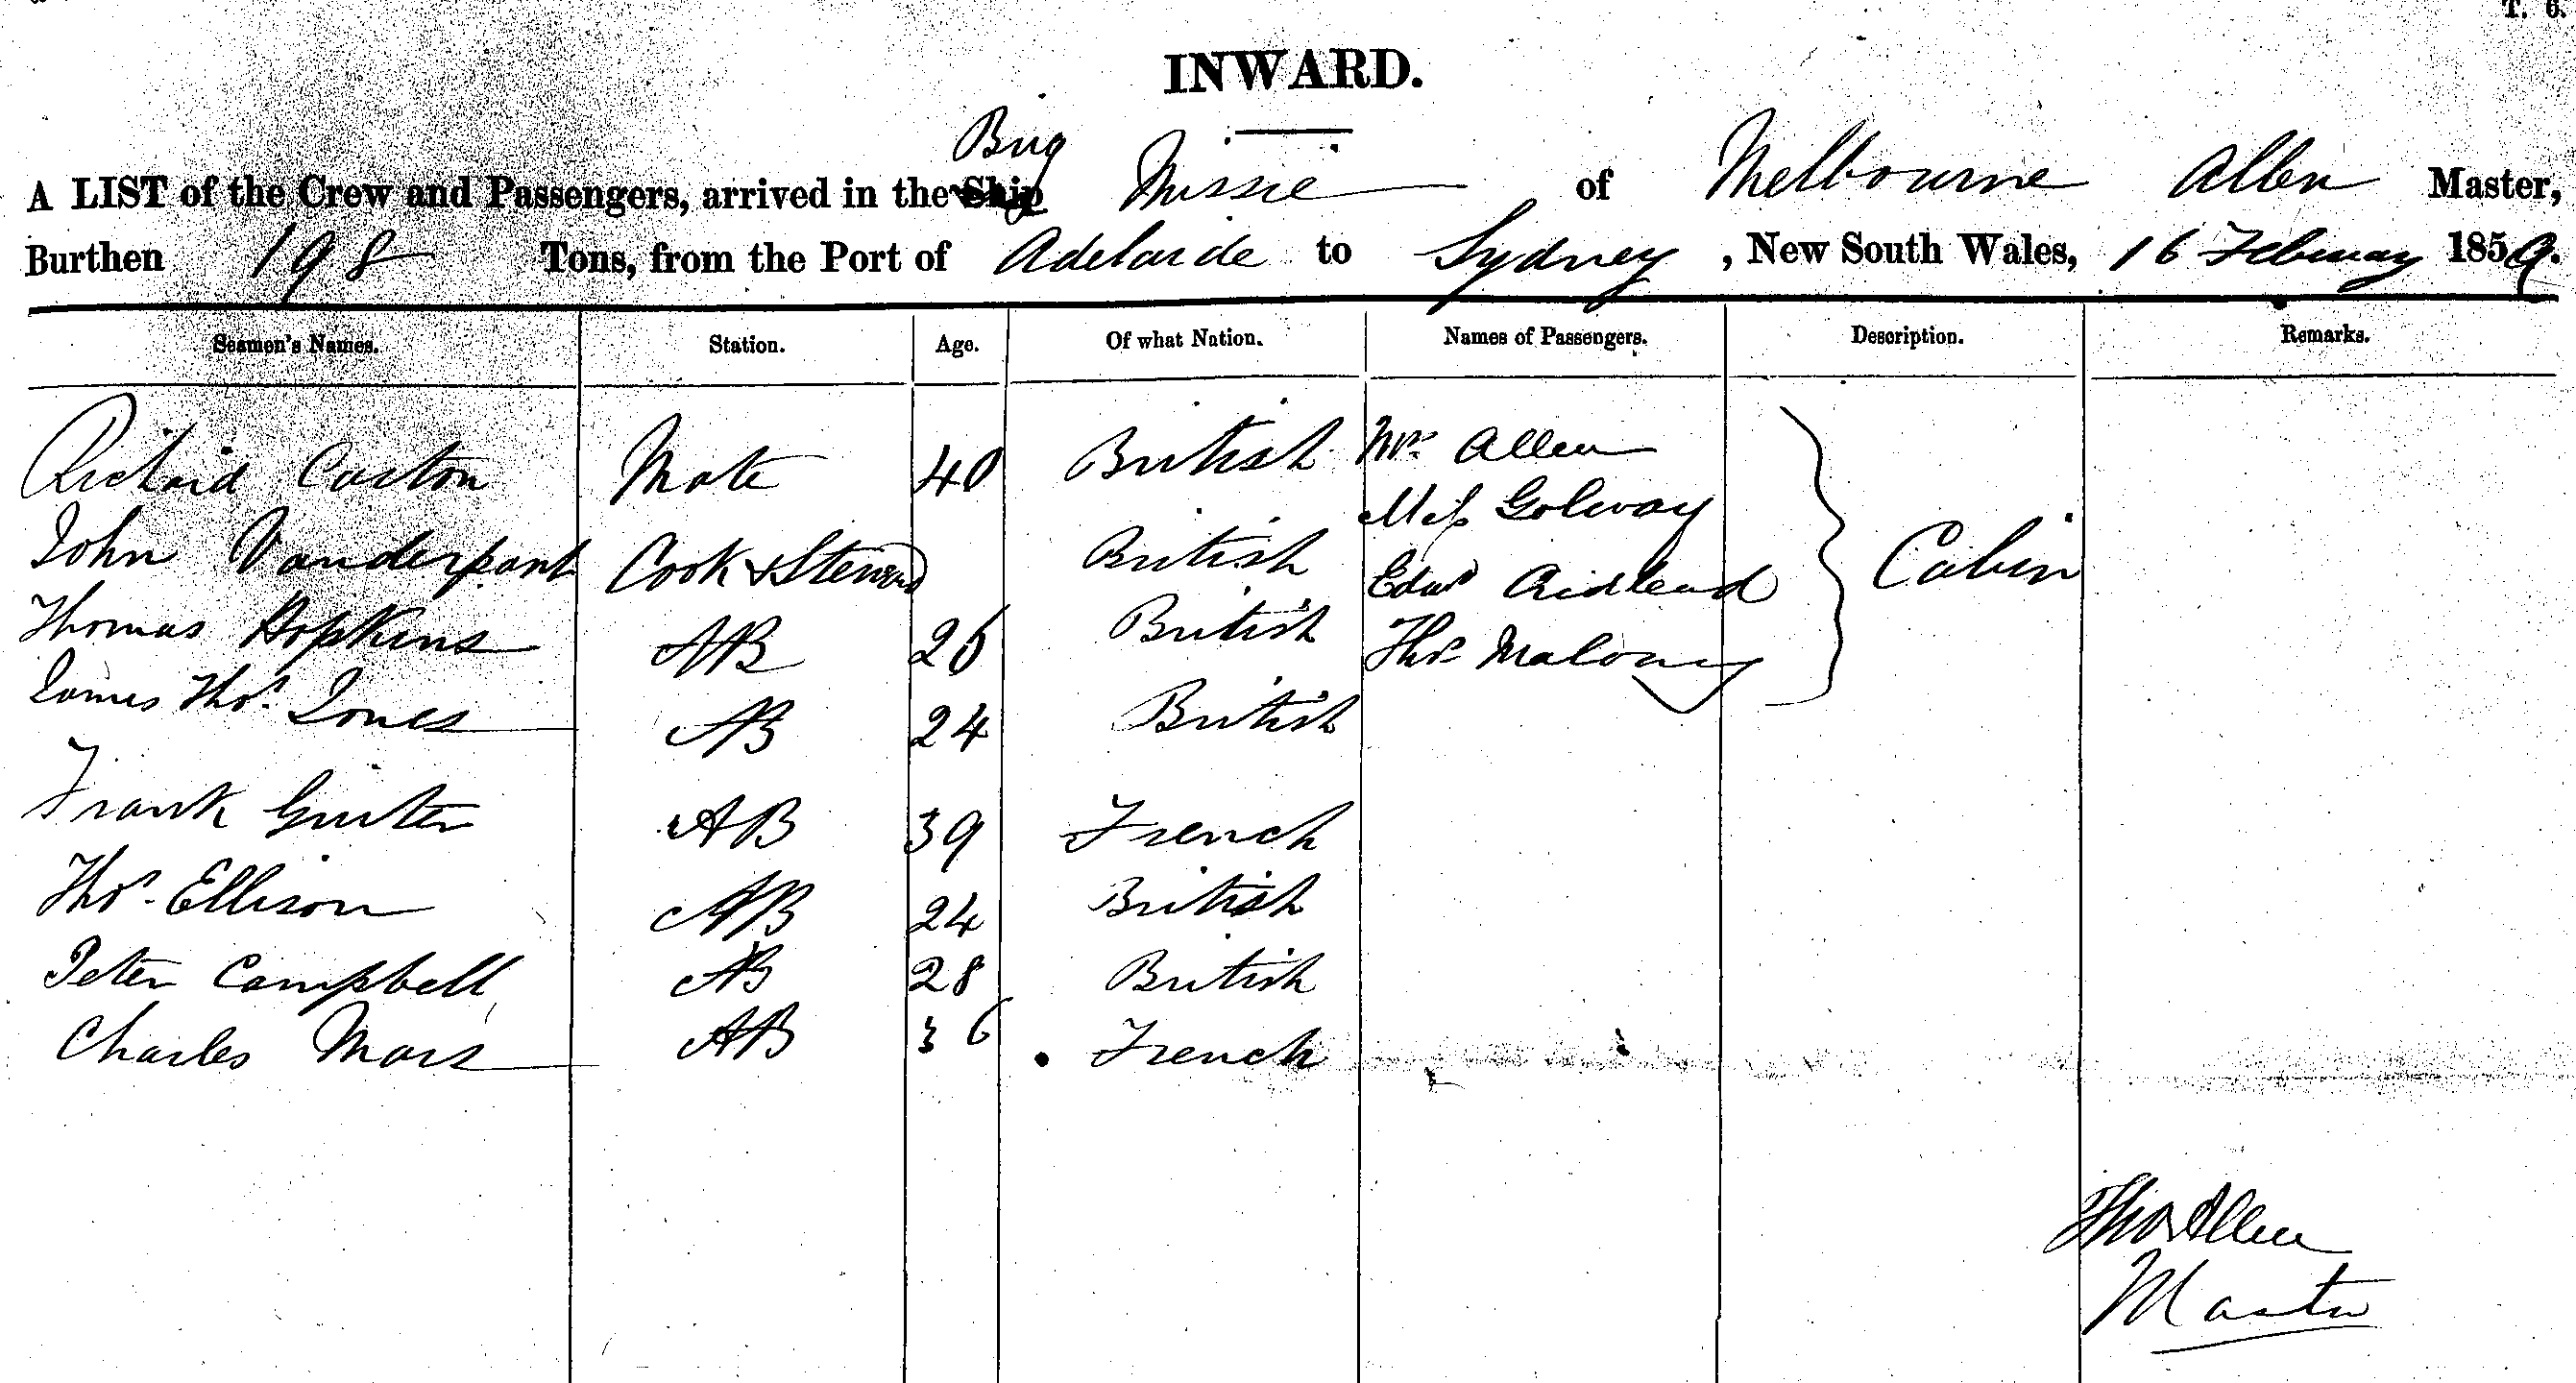 T. 6.
INWARD.
Brig
A LIST of the Crew and Passengers, arrived in the Ship Missie of Melbourne Allen Master,
Burthen 198 Tons, from the Port of Adelaide to Sydney, New South Wales, 16 February 1859.
Seamen's Names. Station. Age. Of what Nation. Names of Passengers. Description. Remarks.
Richard Caston Mate 40 British Mrs Allen
Miss Golway
John Vanderpant Cook & Steward British Edwd Cabin
Thomas Hopkins AB 26 British Thos Maloney
James Thos. Jones AB 24 British
Frank AB 39 French
Thos. Ellison AB 24 British
Peter Campbell AB 28 British
Charles Mars AB 36 French
Thos Allen
Master